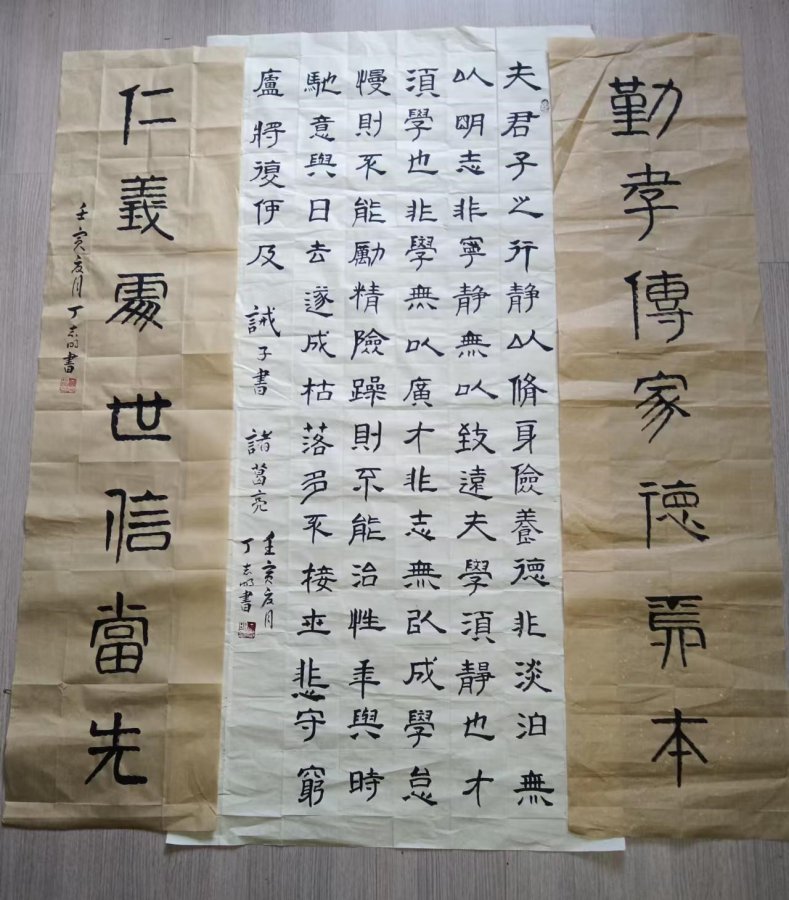 勤孝傳家德為本
夫君子之行静以脩身儉養德非淡泊無
以明志非寧静無以致遠夫學須静也才
須學也非學無以廣才非志無以成學怠
慢則不能勵精險躁則不能治性年與時
馳意與日去遂成枯落多不接世悲守窮
廬將復何及 誡子書 諸葛亮
壬寅夏月
丁志明書
仁義處世信當先
壬寅夏月丁志明書